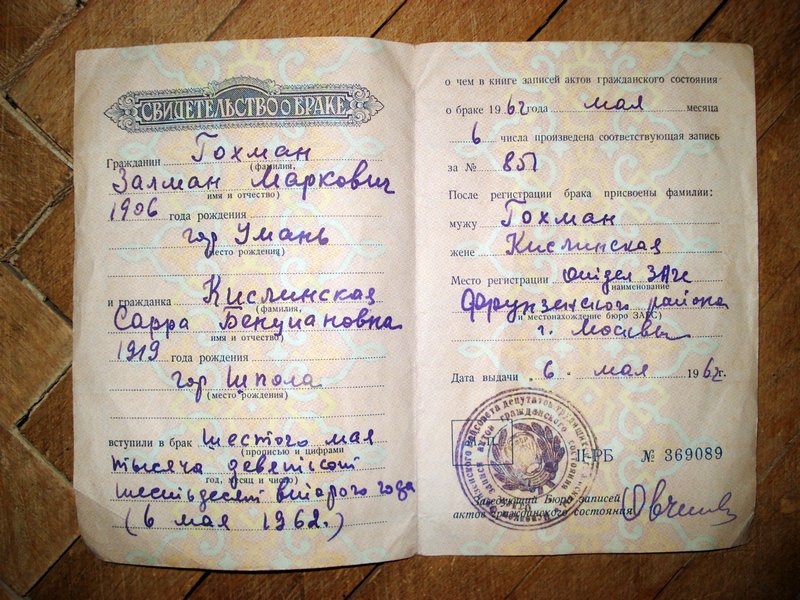 СВИДЕТЕЛЬСТВО О БРАКЕ
Гражданин Гохман
(фамилия,
Залман Маркович
имя и отчество)
1906 года рождения
гор Умань
(место рождения)
и гражданка Кислинская
(фамилия,
Сарра Бенциановна
имя и отчество)
1919 года рождения
гор Шпола
(место рождения)
вступили в брак шестого мая
(прописью и цифрами
тысяча девятсот
год, месяц и число)
шестьдесят второго года
(6 мая 1962.)
о чем в книге записей актов гражданского состояния
о браке 1962 года мая месяца
6 числа произведена соответствующая запись
за № 851
После регистрации брака присвоены фамилии:
мужу Гохман
жене Кислинская
Место регистрации отдел ЗАГС
(наименование
Фрунзенского района
и местонахождение бюро ЗАГС)
г. Москвы
Дата выдачи „6“ мая 1962 г.
II-РБ № 369089
Заведующий Бюро записей
актов гражданского состояния